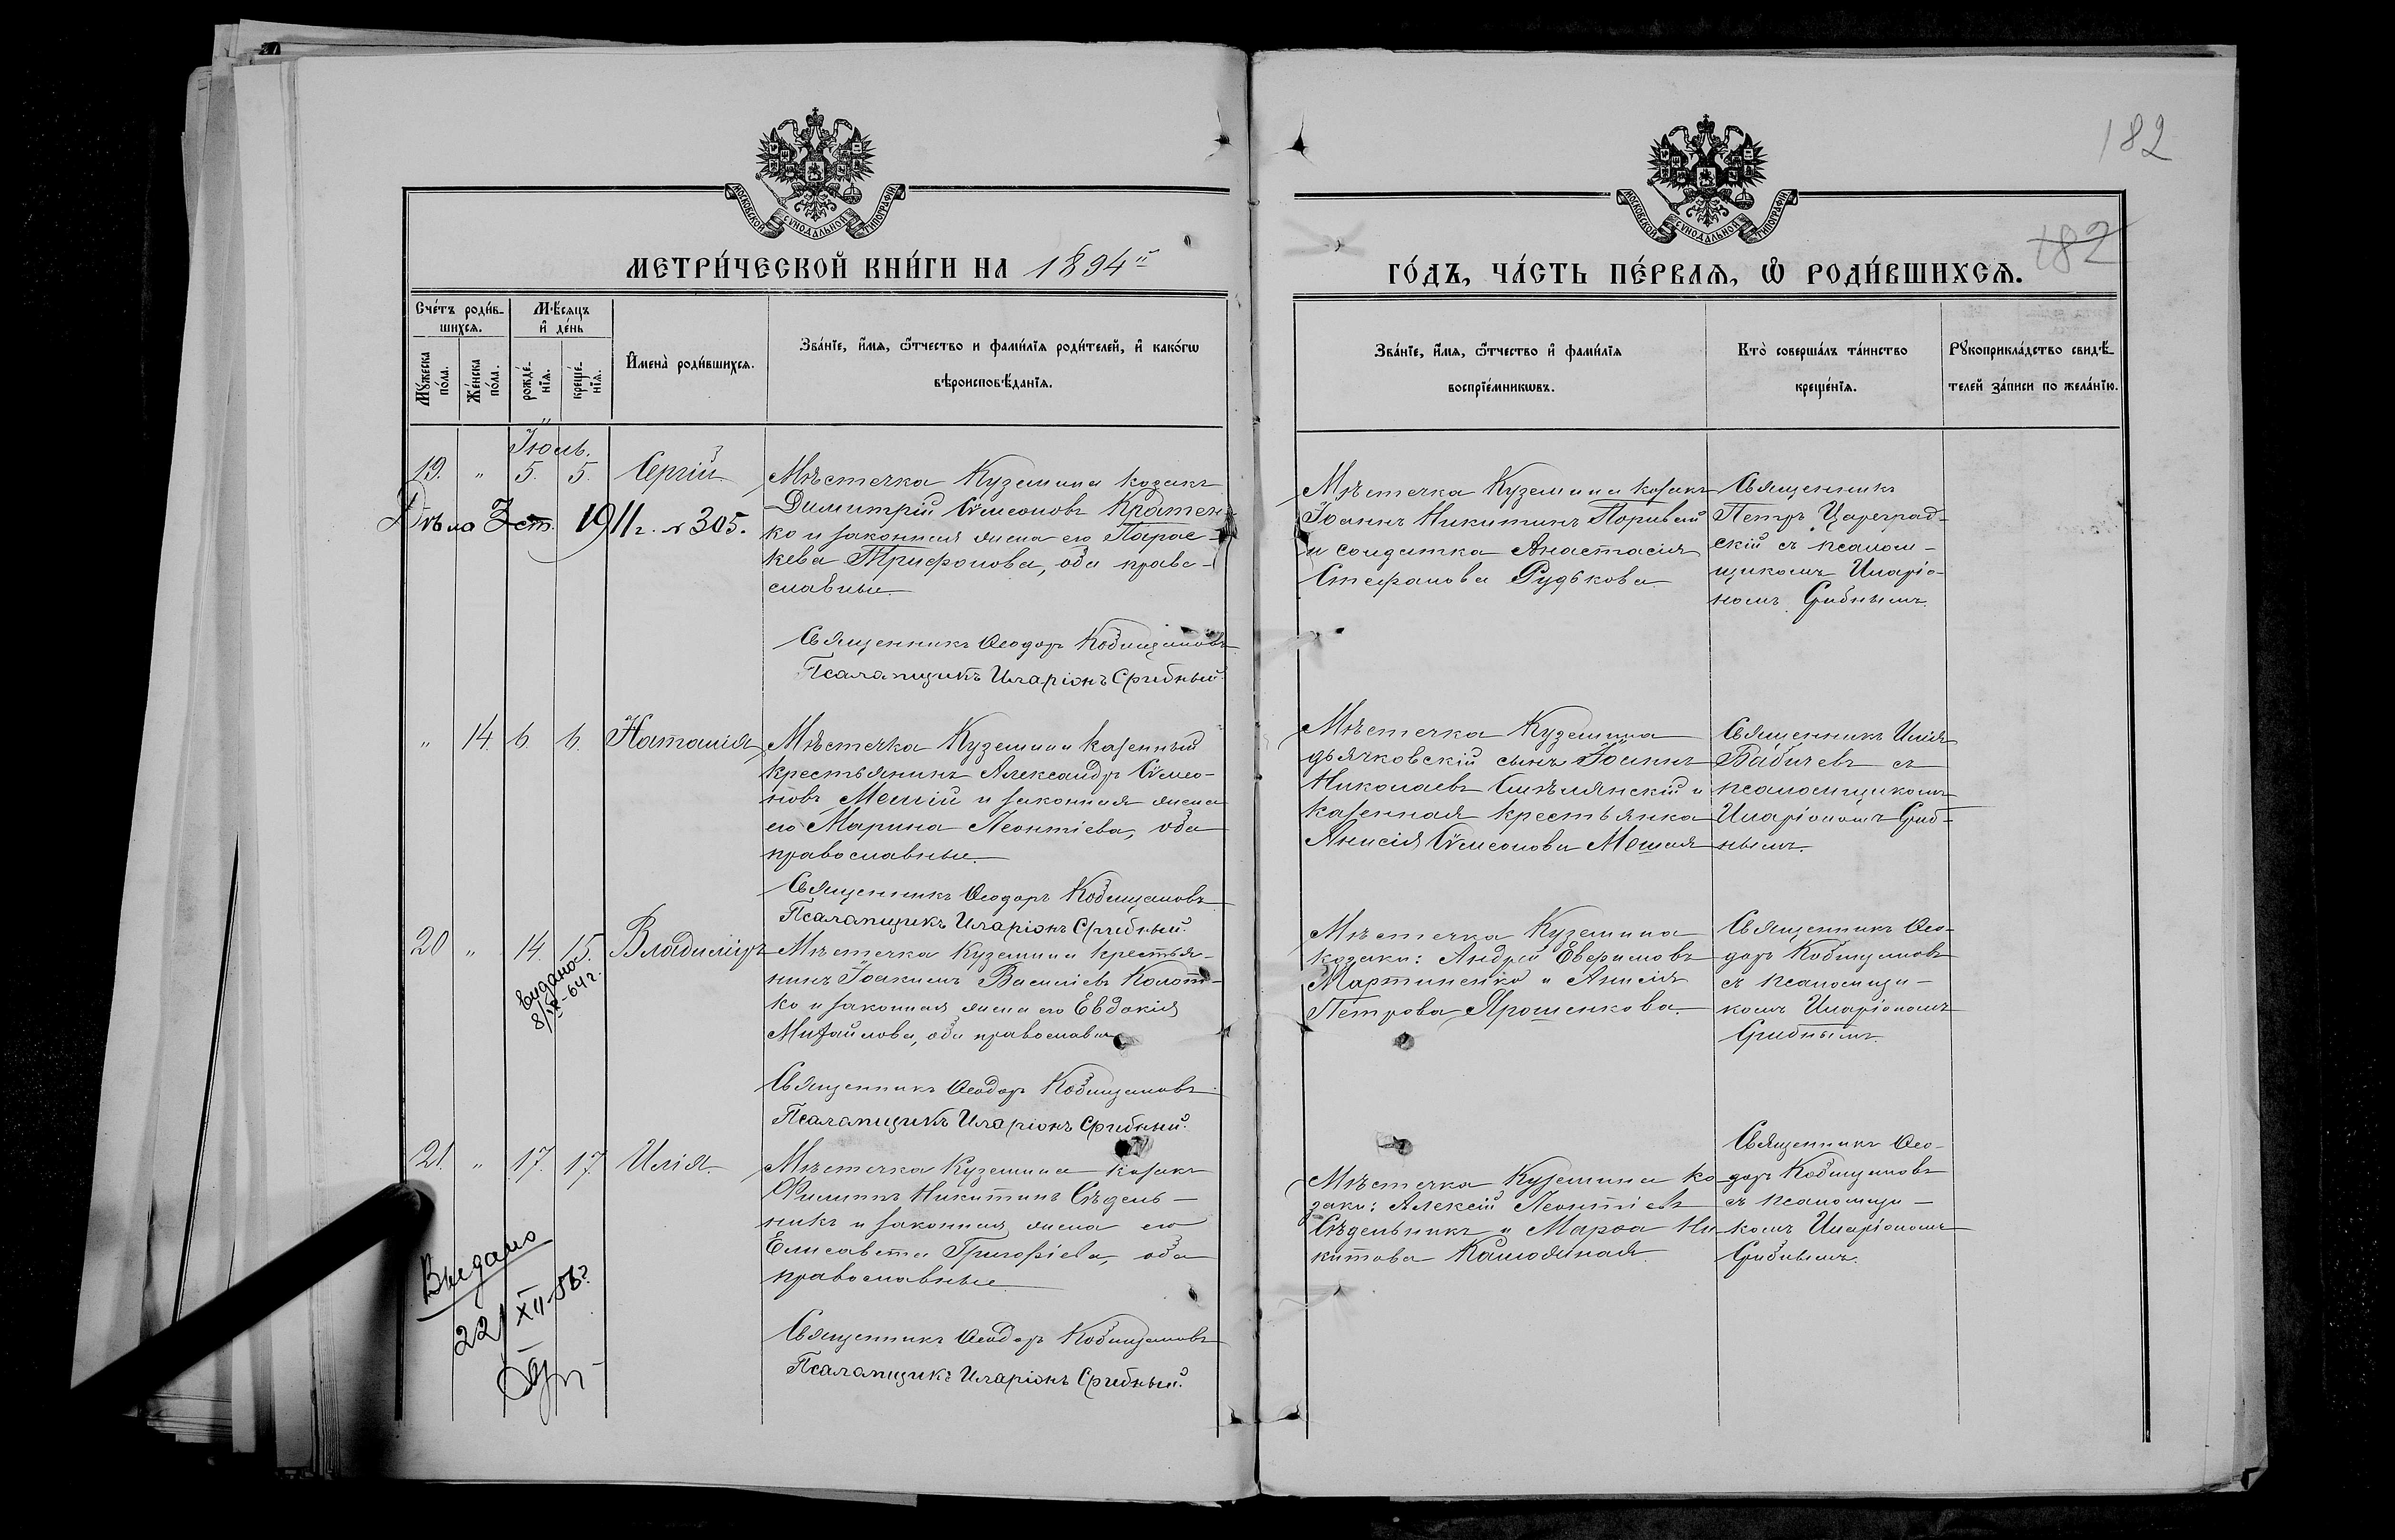 182
МОСКОВСКОЙ СѴНОДАЛЬНОЙ ТИПОГРАФІИ
МОСКОВСКОЙ СѴНОДАЛЬНОЙ ТИПОГРАФІИ
МЕТРИ́ЧЕСКОЙ КНИ́ГИ НА 1894й
ГО́ДЪ, ЧА́СТЬ ПЕ́РВАѦ, Ѡ҆ РОДИ́ВШИХСѦ.
182
Сче́тъ роди́в-
шихсѧ.
Мѣ́сѧцъ
и҆ де́нь
Мꙋ́жеска
по́ла.
Же́нска
по́ла.
рожде́-
нїѧ.
креще́-
нїѧ.
И҆мена̀ роди́вшихсѧ.
Зва́нїе, и҆́мѧ, ѻ҆́тчество и фами́лїѧ роди́телей, и҆ како́гѡ
вѣроисповѣ́данїѧ.
Зва́нїе, и҆́мѧ, ѻ҆́тчество и҆ фами́лїѧ
воспрїе́мникѡвъ.
Кто̀ соверша́лъ та́инство
креще́нїѧ.
Рꙋкоприкла́дство свидѣ́-
телей за́писи по жела́нїю.
Іюль.
19. " 5. 5. Сергій
Мѣстечка Куземина козакъ
Димитрій Сѵмеоновъ Кратен-
ко и законная жена его Парас-
кева Трифонова, оба право-
славные
Дѣло 3 ст. 1911 г. № 305.
Священникъ Ѳеодоръ Кобищановъ
Псаломщикъ Иларіонъ Срибный.
Мѣстечка Куземина козакъ
Іоаннъ Никитинъ Поривай
и солдатка Анастасія
Стефанова Рудькова
Священникъ
Петръ Цареград-
скій съ псалом-
щикомъ Иларіо-
номъ Срибнымъ.
" 14. 6. 6. Наталія
Мѣстечка Куземина казенный
крестьянинъ Александръ Сѵмео-
новъ Мешій и законная жена
его Марина Леонтіева, оба
православные.
Священникъ Ѳеодоръ Кобищановъ
Псаломщикъ Иларіонъ Срибный.
Мѣстечка Куземина
дьячковскій сынъ Іоаннъ
Николаевъ Смѣлянскій и
казенная крестьянка
Анисія Сѵмеонова Мешая
Священникъ Илія
Бабичевъ съ
псаломщикомъ
Иларіономъ Сриб-
нымъ.
20 " 14. 15. Владиміръ
Мѣстечка Куземина крестья-
нинъ Іоакимъ Василіевъ Колот-
ко и законная жена его Евдокія
Михайлова, оба православны
видано
8/IX-64 г.
Священникъ Ѳеодоръ Кобищановъ
Псаломщикъ Иларіонъ Срибный.
Мѣстечка Куземина
козаки: Андрей Еверимовъ
Мартиненко и Анисія
Петрова Ярошенкова.
Священникъ Ѳео-
доръ Кобищановъ
съ псаломщи-
комъ Иларіономъ
Срибнымъ.
21. " 17. 17 Илія.
Мѣстечка Куземина козакъ
Филиппъ Никитинъ Сѣдель-
никъ и законная жена его
Елисавета Григоріева, оба
православные
Выдано
22/XII-56 г.
Священникъ Ѳеодоръ Кобищановъ
Псаломщикъ Иларіонъ Срибный.
Мѣстечка Куземина ко-
заки: Алексій Леонтіевъ
Сѣдельникъ и Марѳа Ни-
китова
Священникъ Ѳео-
доръ Кобищановъ
съ псаломщи-
комъ Иларіономъ
Срибнымъ.